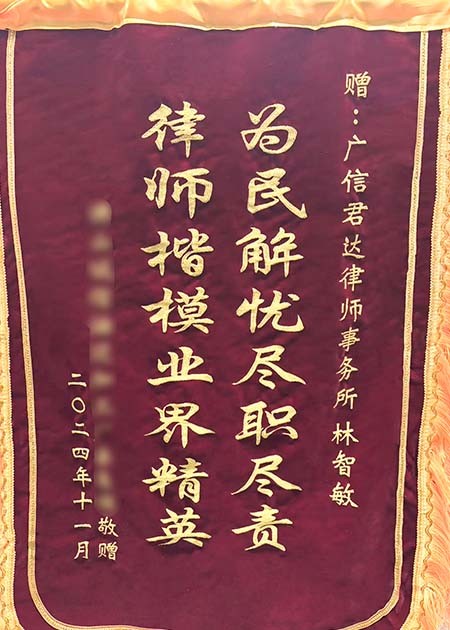 赠：广信君达律师事务所 林智敏
为民解忧尽职尽责
律师楷模业界精英
敬赠
二〇二四年十一月